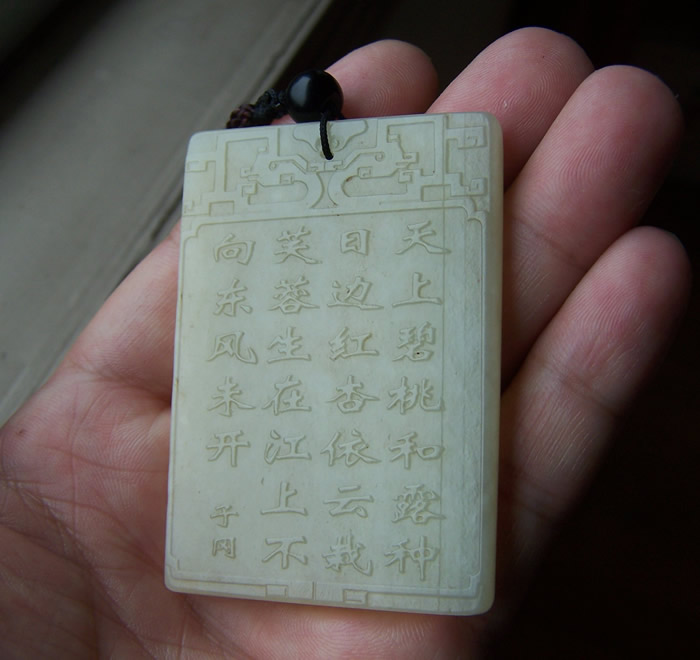 天上碧桃和露种
日边红杏依云栽
芙蓉生在江上不
向东风未开
子冈